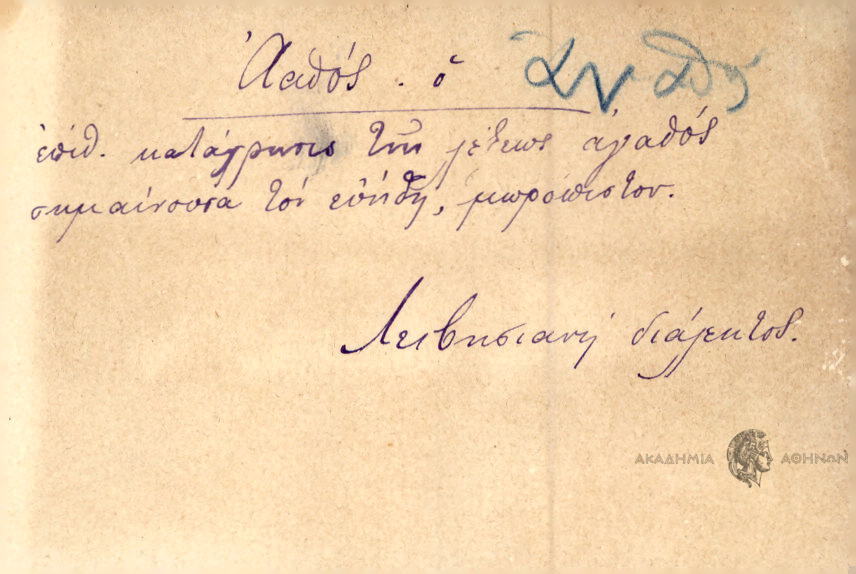 Ἀαθός. ὁ
ἐπίθ. κατάχρησις τῆς λέξεως ἀγαθός
σημαίνουσα τόν εὐήθη, μωρόπιστον.
Λειβησιανή διάλεκτος.
ΑΚΑΔΗΜΙΑ ΑΘΗΝΩΝ